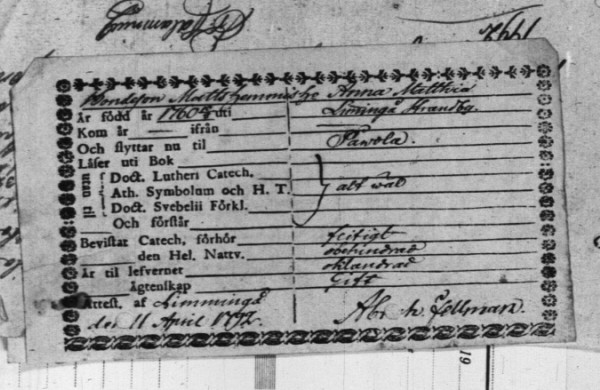 1792
Bondeson Matts hemmis h: Anna Matthia
Är född år 1760 uti Limingå Strandby.
Kom år — ifrån
Och flyttar nu til Pavola.
Läser uti Bok
utan til
Doct. Lutheri Catech.
Ath. Symbolum och H. T. alt wäl
Doct. Svebelii Förkl.
Och förstår
Bevistat Catech, förhör flitigt
den Hel. Nattv. obehindrad
Är til lefvernet oklandrad
ägtenskap Gift
Attest. af Limmingå
den 11 April 1792. Abr. h. Fellman.
19